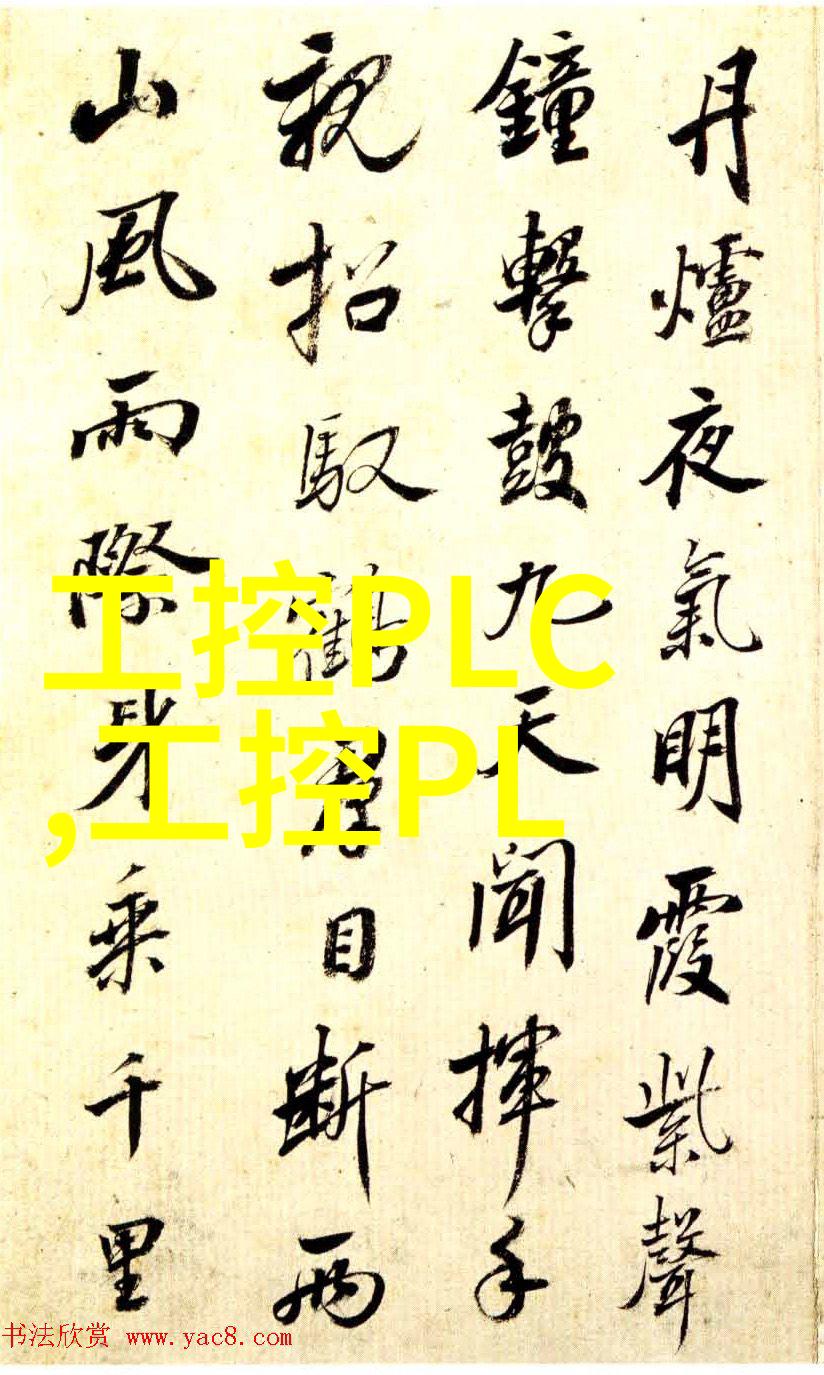 丹爐夜氣明霞紫聲
鐘擊鼓九天聞揮手
親招馭鶴君目斷兩
山風雨際身乘千里
工控PLC
,工控PL
书法欣赏 www.yac8.com